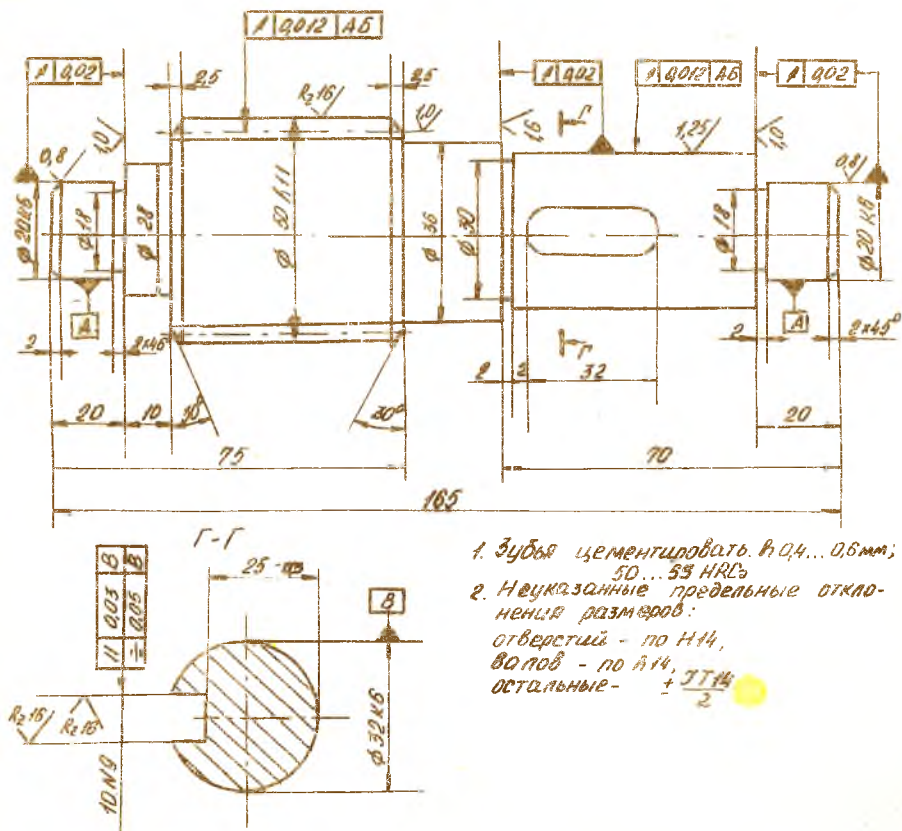 ↗ 0,012 АБ
↗ 0,02
2,5
2,5
↗ 0,02
↗ 0,012 АБ
↗ 0,02
Rz16
1,0
1,0
1,6
Г
1,25
1,0
0,8
0,8
ϕ20к6
ϕ18
ϕ28
ϕ50h11
ϕ36
ϕ30
ϕ18
ϕ20к6
А
А
2
2×45
Г
2
2
32
2
2×45°
20
10
30°
20
75
70
165
Г-Г
// 0,03 В
0,05 В
25
В
Rz16
Rz16
10N9
ϕ32к6
1. Зубья цементировать h 0,4... 0,6мм;
50...59 HRCэ
2. Неуказанные предельные откло-
нения размеров:
отверстий - по Н14,
валов - по h14,
остальные- ± IT14/2